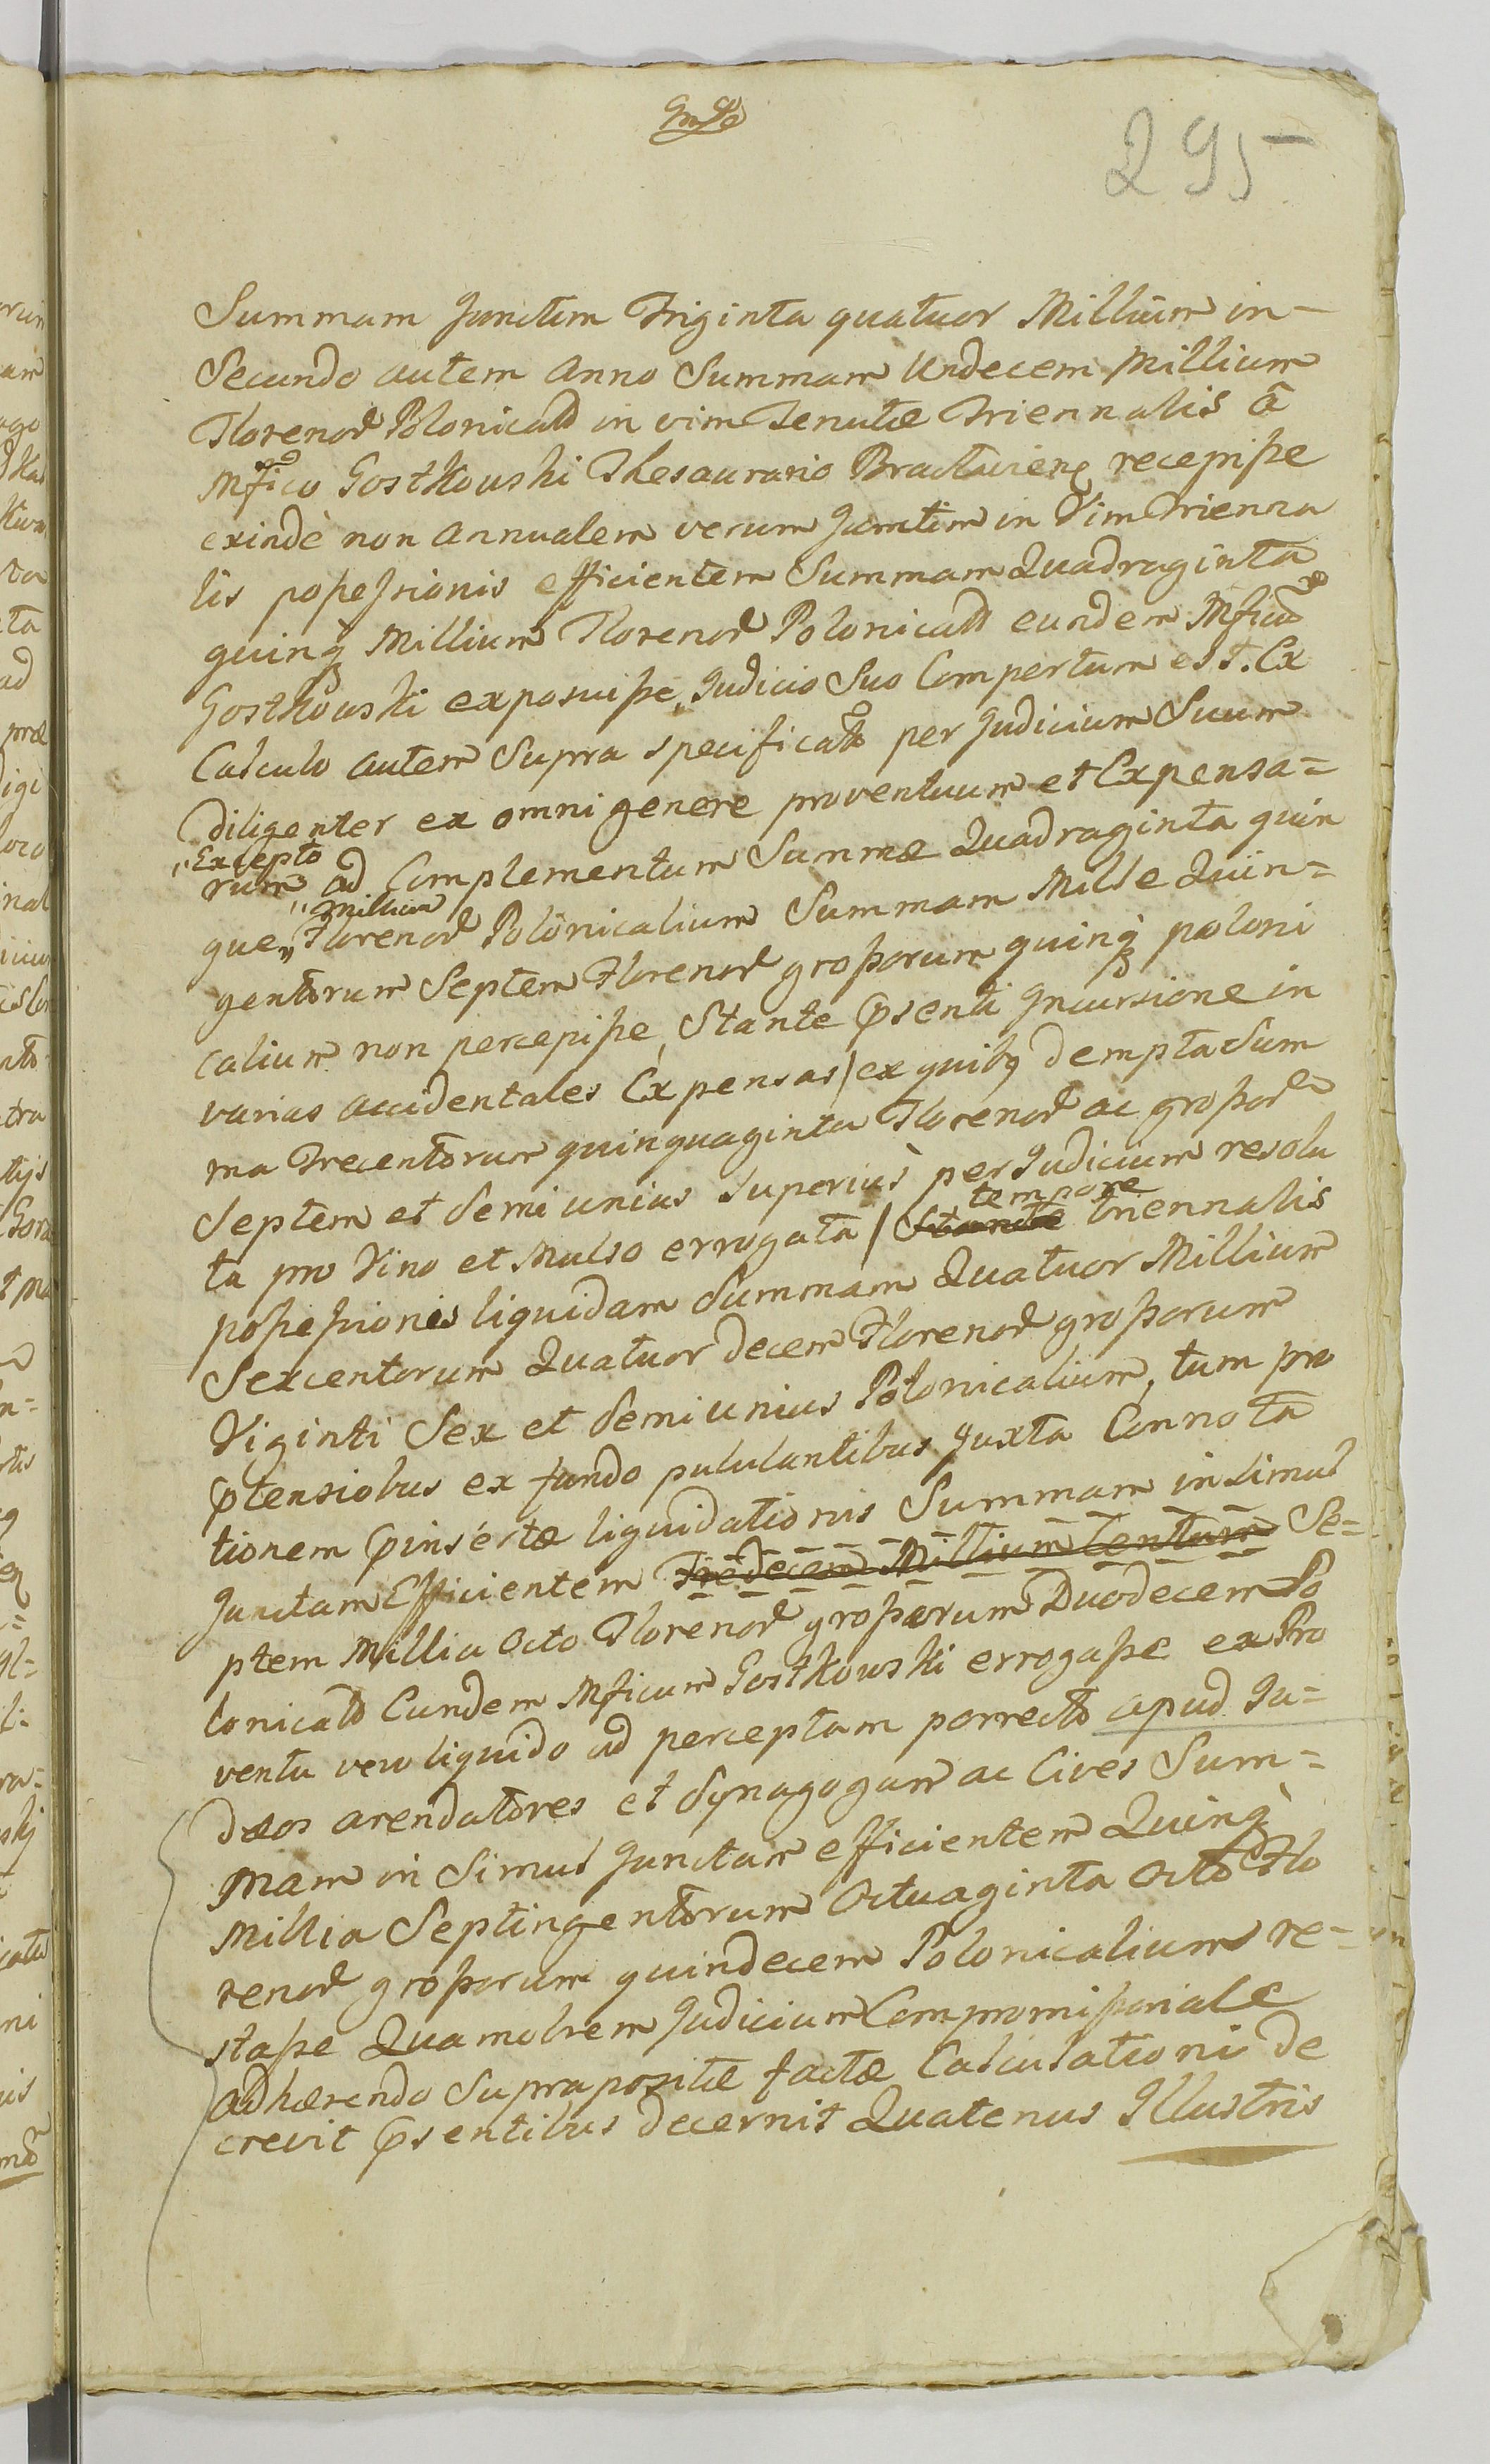 295
Summam Junctim Triginta quatuor Millium in-
Secundo autem Anno Summam Undecem Millium
Florenor Polonicall in vim Tenutæ Triennalis â
Mfico Gostkowski Thesaurario Bractavien recepiße
exindè non Annualem verum Junctim in Vim Trienna
lis poßeßionis efficientem Summam Quadraginta
quinq Millium Florenor Polonicall eundem Mficum
Gostkowski exposuiße, Judicio Suo Compertum est. Ex
Calculo autem Supra specificato per Judicium Suum
diligenter ex omni genere proventuum et Expensa=
rum "Excepto" ad Complementum Summæ Quadraginta quin
que "Millium" Florenor Polonicalium Summam Mille Quin=
gentorum Septem Florenor großorum quinq poloni
calium non percepiße, Stante Psenti Incursione in
varias accidentales Expensas / ex quibq dempta Sum
ma Trecentorum quinquaginta Florenor ac großor
Septem et Semi unius Superius per Judicium resolu
ta pro Vino et Mulso errogata / Stante tempore triennalis
poßeßionis liquidam Summam Quatuor Millium
Sexcentorum Quatuor decem Florenor großorum
Viginti Sex et Semi unius Polonicalium, tum pro
Ptensiobus ex fundo pululantibus Juxta Connota
tionem Pinsertæ liquidationis Summam insimul
Junctam Efficientem Tredecem Millium Centum Se=
ptem Millia Octo Florenor großorum Duodecem Po
lonicall Eundem Mficum Gostkowski errogaße ex Pro
ventu vero liquido ad perceptam porrecto apud Ju=
dæos arendatores et Synagogam ac Cives Sum=
mam in Simul Junctam efficientem Quinq
Millia Septingentorum Octuaginta Octo Flo
renor großorum quindecem Polonicalium re=
staße Quamobrem Judicium Compromißoriale
adhærendo Supra positæ factæ Calculationi de
crevit Psentibus decernit Quatenus Illustris